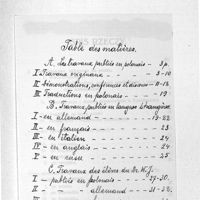 Table des matières.
A. Les travaux publiés en polonais - 3 p.
I Travaux originaux - - - 3-10
II Démonstrations, conférences et - 11-18.
III Traductions en polonais - - 19.
B. Travaux publiés en langues étrangères
I - en allemand - - - 19-22.
II - en français - - - 23
III - en italien - - - 24
IV - en anglais - - - 24
V - en russe - - - 25.
C. Travaux des élèves du Dr. W. J.
I - publiés en polonais - - 27-30.
II - - allemand - - 31-32.